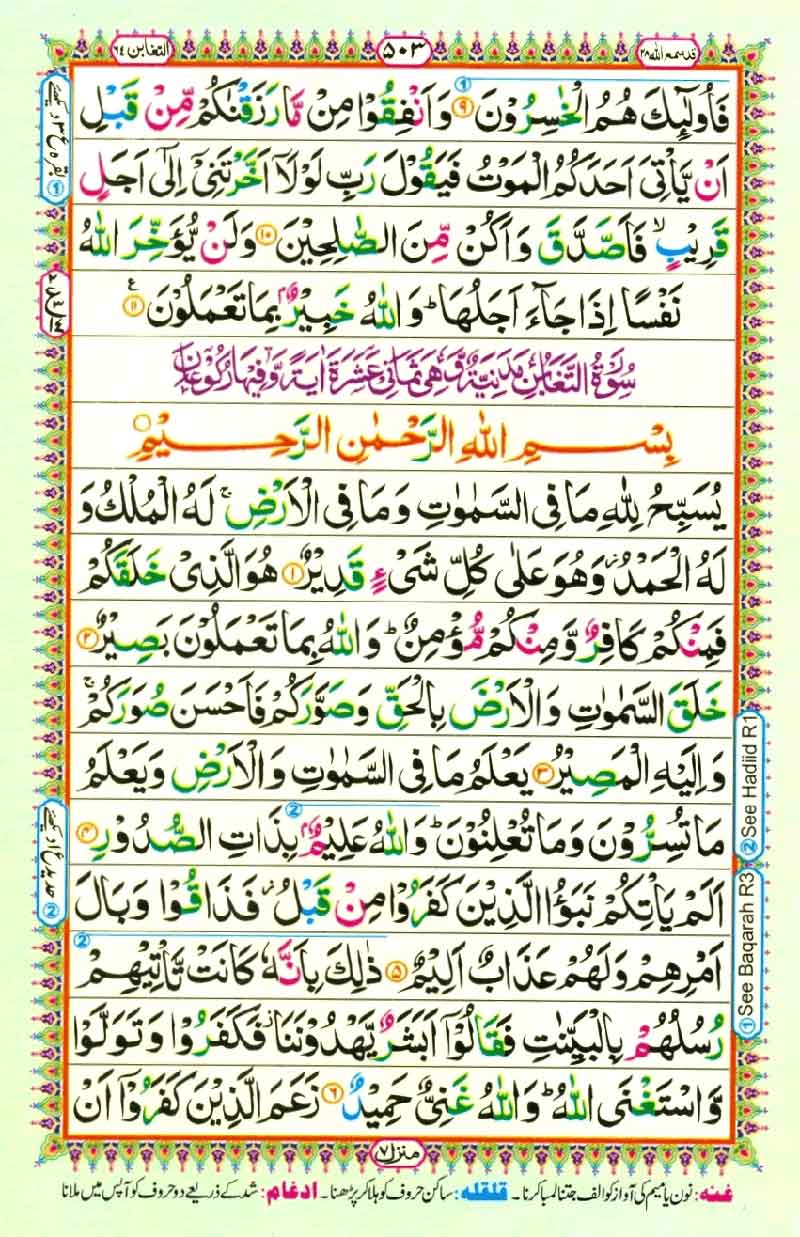 قدسمع الله ٢٨
٥٠٣
التغابن ٦٤
فَاُولٰٓئِكَ هُمُ الْخٰسِرُوْنَ ۹ وَاَنْفِقُوْا مِنْ مَّا رَزَقْنٰكُمْ مِّنْ قَبْلِ
اَنْ يَّاْتِیَ اَحَدَكُمُ الْمَوْتُ فَيَقُوْلَ رَبِّ لَوْلَاۤ اَخَّرْتَنِیْۤ اِلٰۤی اَجَلٍ
قَرِيْبٍ ۙ فَاَصَّدَّقَ وَاَكُنْ مِّنَ الصّٰلِحِيْنَ ۱۰ وَلَنْ يُّؤَخِّرَ اللهُ
نَفْسًا اِذَا جَآءَ اَجَلُهَا ؕ وَاللهُ خَبِيْرٌۢ بِمَا تَعْمَلُوْنَ ۱۱
سُوْرَةُ التَّغَابُنِ مَدَنِيَّةٌ وَّهِیَ ثَمَانِیَ عَشَرَةَ اٰيَةً وَّفِيْهَا رُكُوْعَانِ
بِسْمِ اللهِ الرَّحْمٰنِ الرَّحِيْمِ
يُسَبِّحُ لِلّٰهِ مَا فِی السَّمٰوٰتِ وَمَا فِی الْاَرْضِ ۚ لَهُ الْمُلْكُ وَ
لَهُ الْحَمْدُ ؗ وَهُوَ عَلٰی كُلِّ شَیْءٍ قَدِيْرٌ ۱ هُوَ الَّذِیْ خَلَقَكُمْ
فَمِنْكُمْ كَافِرٌ وَّمِنْكُمْ مُّؤْمِنٌ ؕ وَاللهُ بِمَا تَعْمَلُوْنَ بَصِيْرٌ ۲
خَلَقَ السَّمٰوٰتِ وَالْاَرْضَ بِالْحَقِّ وَصَوَّرَكُمْ فَاَحْسَنَ صُوَرَكُمْ ۚ
وَاِلَيْهِ الْمَصِيْرُ ۳ يَعْلَمُ مَا فِی السَّمٰوٰتِ وَالْاَرْضِ وَيَعْلَمُ
مَا تُسِرُّوْنَ وَمَا تُعْلِنُوْنَ ؕ وَاللهُ عَلِيْمٌۢ بِذَاتِ الصُّدُوْرِ ۴
اَلَمْ يَاْتِكُمْ نَبَؤُا الَّذِيْنَ كَفَرُوْا مِنْ قَبْلُ ؗ فَذَاقُوْا وَبَالَ
اَمْرِهِمْ وَلَهُمْ عَذَابٌ اَلِيْمٌ ۵ ذٰلِكَ بِاَنَّهٗ كَانَتْ تَّاْتِيْهِمْ
رُسُلُهُمْ بِالْبَيِّنٰتِ فَقَالُوْۤا اَبَشَرٌ يَّهْدُوْنَنَا ؗ فَكَفَرُوْا وَتَوَلَّوْا
وَّاسْتَغْنَی اللهُ ؕ وَاللهُ غَنِیٌّ حَمِيْدٌ ۶ زَعَمَ الَّذِيْنَ كَفَرُوْۤا اَنْ
② See Hadiid R1
① See Baqarah R3
منزل ٧
غنه: نون یا میم کی آواز کو الف جتنا لمبا کرنا۔ قلقله: ساکن حروف کو ہلا کر پڑھنا۔ ادغام: شد کے ذریعے دو حروف کو آپس میں ملانا